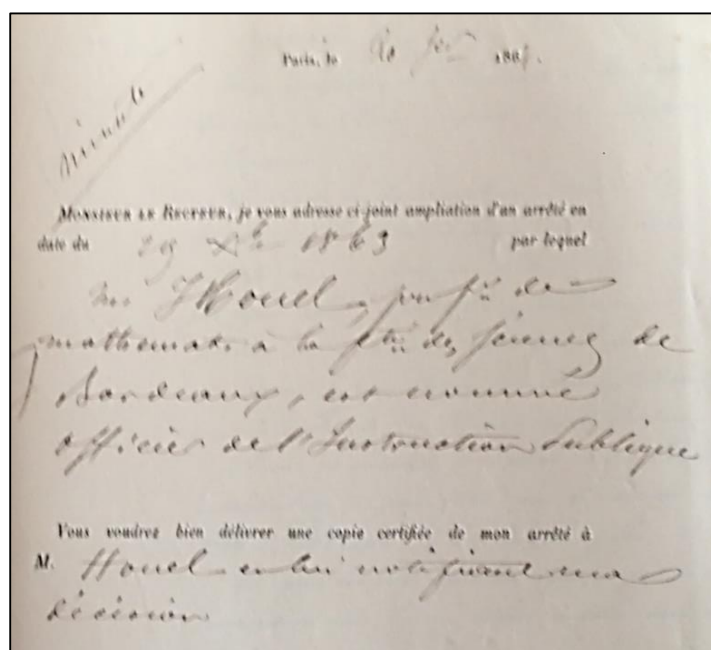 Paris, le 20 jer 186
minute
MONSIEUR LE RECTEUR, je vous adresse ci-joint ampliation d'un arrêté en
date du 29 Xbre 1863 par lequel
Mr. Houel, profr. de
mathémat. à la fté. des sciences de
Bordeaux, est nommé
officier de l'Instruction Publique
Vous voudrez bien délivrer une copie certifiée de mon arrêté à
M. Houel en lui notifiant ma
décision